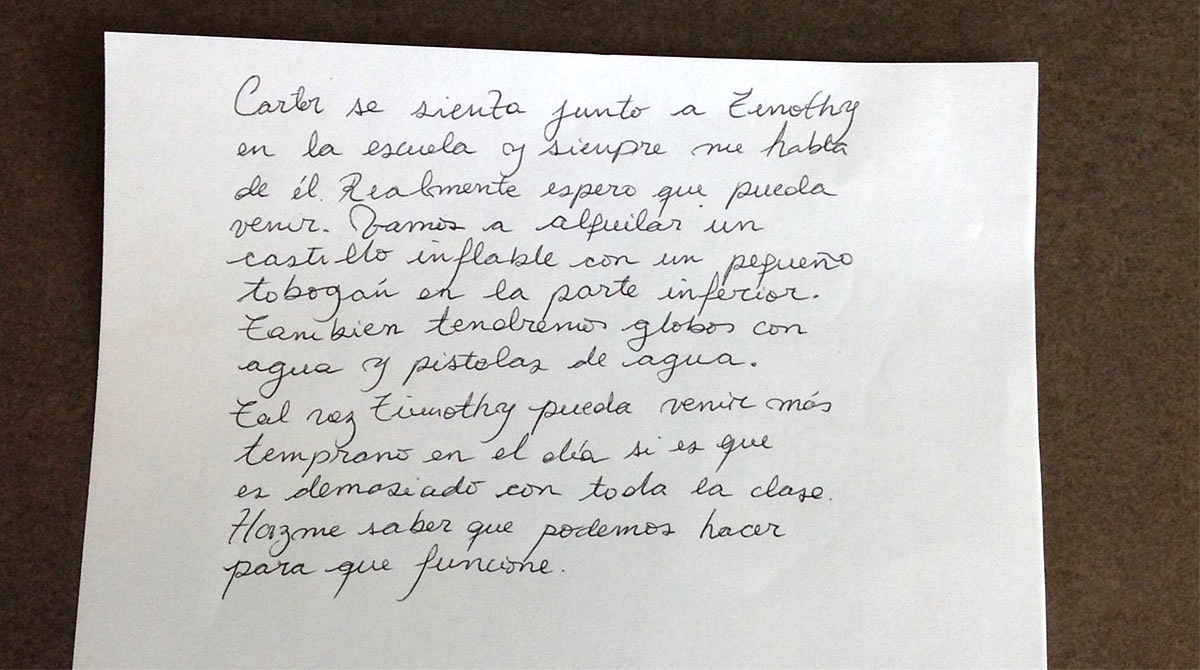 Carter se sienta junto a Timothy
en la escuela y siempre me habla
de él. Realmente espero que pueda
venir. Vamos a alquilar un
castillo inflable con un pequeño
tobogán en la parte inferior.
Tambien tendremos globos con
agua y pistolas de agua.
Tal vez Timothy pueda venir más
temprano en el día si es que
es demasiado con toda la clase.
Hazme saber que podemos hacer
para que funcione.